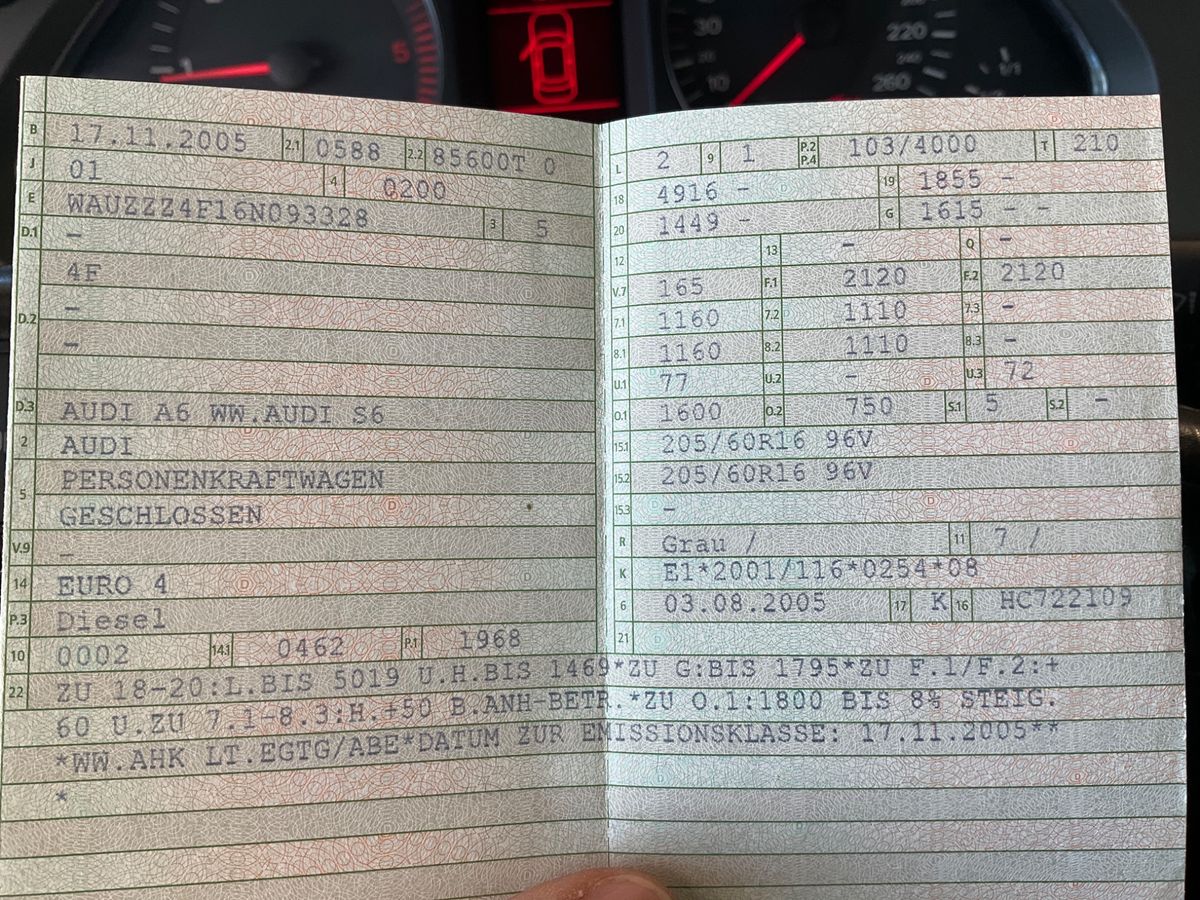 5
30
10
220
260
1/1
B 17.11.2005 2.1 0588 2.2 85600T 0
J 01 4 0200
E WAUZZZ4F16N093328 3 5
D.1 -
4F
D.2 -
-
D.3 AUDI A6 WW.AUDI S6
2 AUDI
5 PERSONENKRAFTWAGEN
GESCHLOSSEN
V.9 -
14 EURO 4
P.3 Diesel
10 0002 14.1 0462 P.1 1968
L 2 9 1 P.2 P.4 103/4000 T 210
18 4916 - 19 1855 -
20 1449 - G 1615 - -
12 13 - Q -
V.7 165 F.1 2120 F.2 2120
7.1 1160 7.2 1110 7.3 -
8.1 1160 8.2 1110 8.3 -
U.1 77 U.2 - U.3 72
O.1 1600 O.2 750 S.1 5 S.2 -
15.1 205/60R16 96V
15.2 205/60R16 96V
15.3 -
R Grau / 11 7 /
K E1*2001/116*0254*08
6 03.08.2005 17 K 16 HC722109
21
22 ZU 18-20:L.BIS 5019 U.H.BIS 1469*ZU G:BIS 1795*ZU F.1/F.2:+
60 U.ZU 7.1-8.3:H.+50 B.ANH-BETR.*ZU O.1:1800 BIS 8% STEIG.
*WW.AHK LT.EGTG/ABE*DATUM ZUR EMISSIONSKLASSE: 17.11.2005**
*